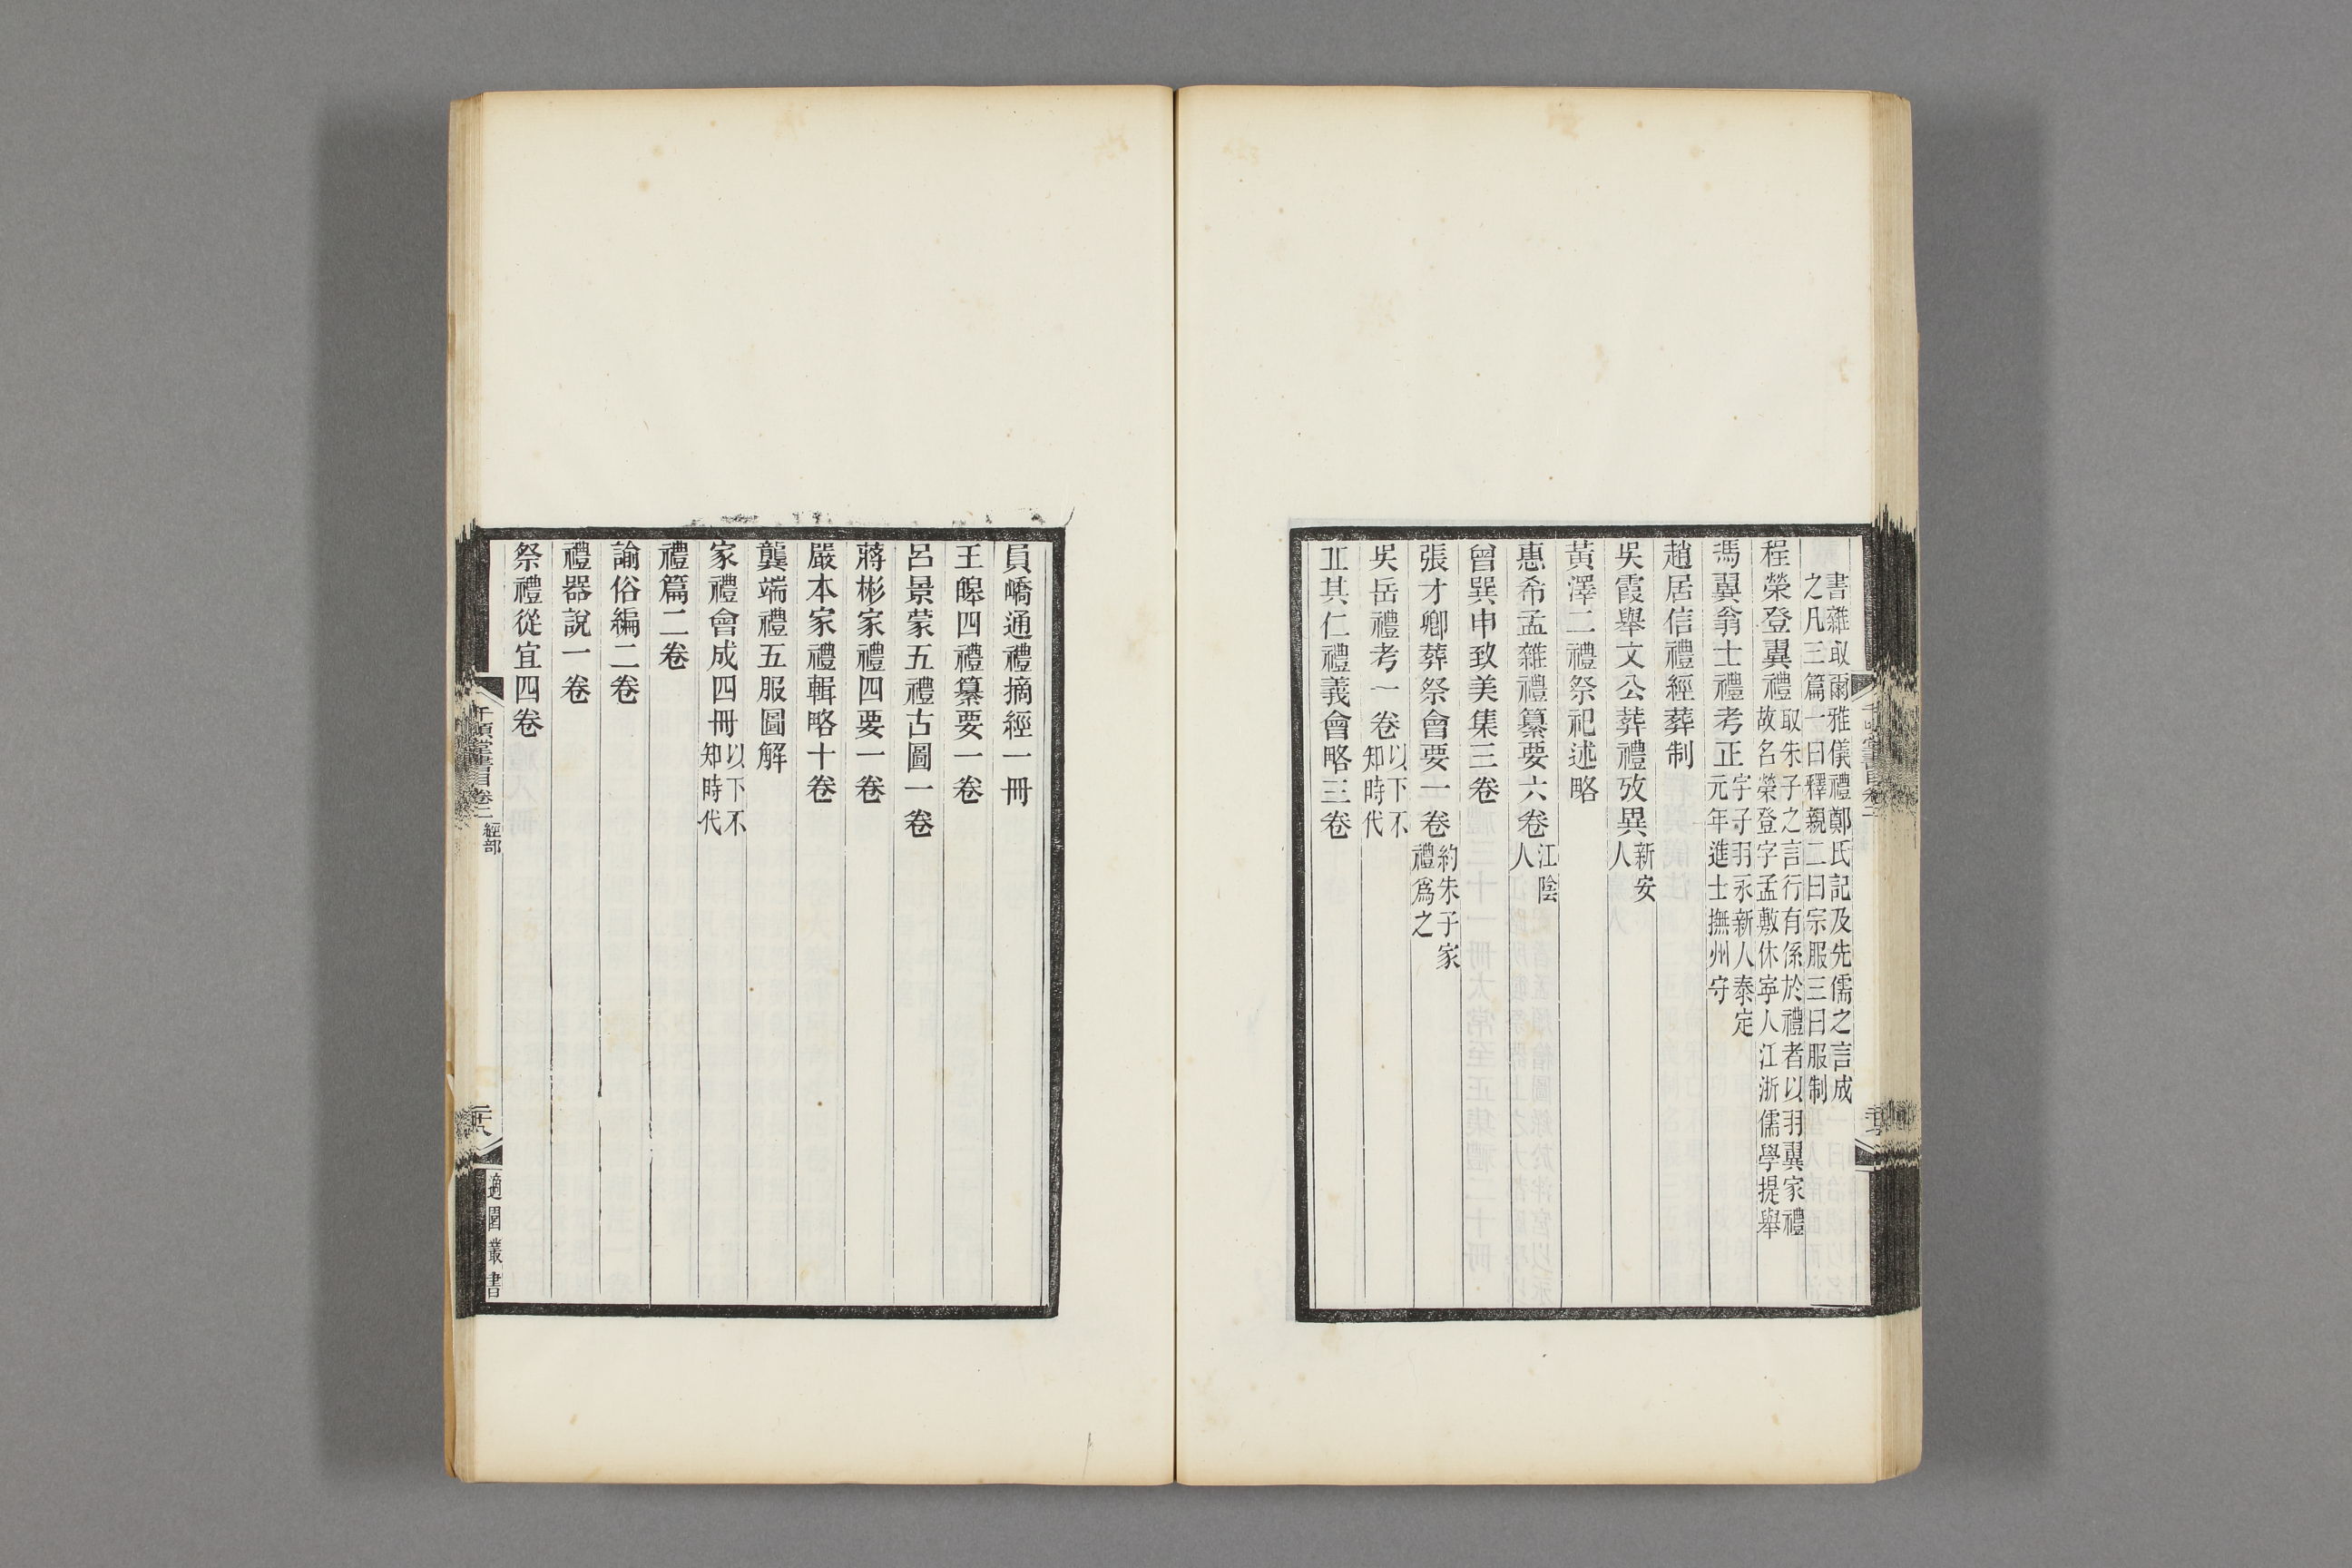 書雜取爾雅儀禮鄭氏記及先儒之言成
之凡三篇一曰釋親二曰宗服三曰服制
程榮登翼禮取朱子之言行有係於禮者以羽翼家禮
故名榮登字孟敷休寧人江浙儒學提舉
馮翼翁士禮考正字子羽永新人泰定
元年進士撫州守
趙居信禮經葬制
吳霞舉文公葬禮攷異新安
人
黃澤二禮祭祀述略
惠希孟雜禮纂要六卷江陰
人
曾巽申致美集三卷
張才卿葬祭會要一卷約朱子家
禮爲之
吳岳禮考一卷以下不
知時代
其仁禮義會略三卷
員嶠通禮摘經一冊
王皞四禮纂要一卷
呂景蒙五禮古圖一卷
蔣彬家禮四要一卷
嚴本家禮輯略十卷
龔端禮五服圖解
家禮會成四冊以下不
知時代
禮篇二卷
諭俗編二卷
禮器說一卷
祭禮從宜四卷
千頃堂書目卷二 經部
二十八
適園叢書